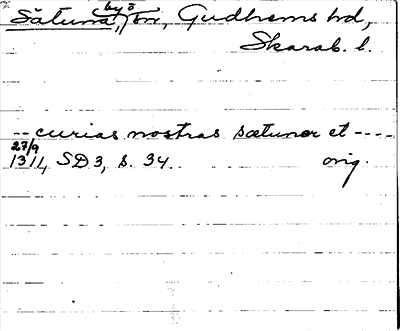 Sätuna, by ö
Gudhems hd,
Skarab. l.
-- curias nostras sætunor et ----
27/9
1311, SD 3, s. 34. orig.